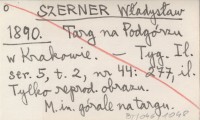 SZERNER Władysław
1890. Targ na Podgórzu
w Krakowie. — Tyg. Il.
ser. 5, t. 2, nr 44: 277, il.
Tylko reprod. obrazu.
M. in. górale na targu.